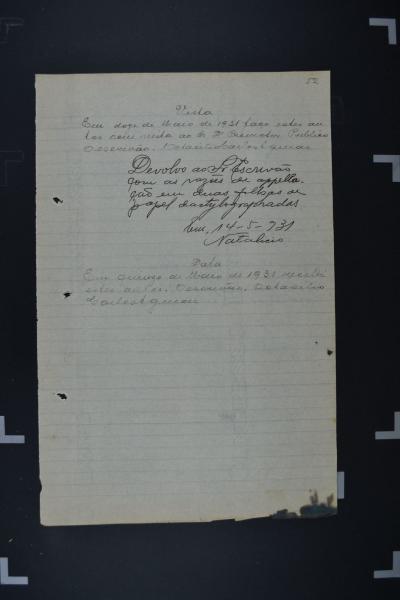 52
Vista
Em doze de Maio de 1931 faço estes au
tos com vista ao D. Promotor Publico
O escrivão.
Devolvo ao Sr. Escrivão
com as razões de appella-
ção em duas folhas de
papel dactylographadas.
Em, 14-5-931
Natalicio
Data
Em quinze de Maio de 1931 recebi
estes autos. O escrivão,